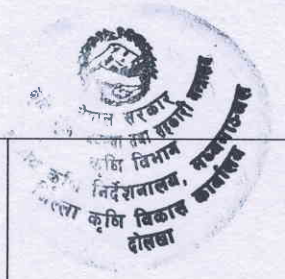 नेपाल सरकार
तथा सहकारी
कृषि विभाग
कृषि निर्देशनालय,
जिल्ला कृषि विकास कार्यालय
दोलखा